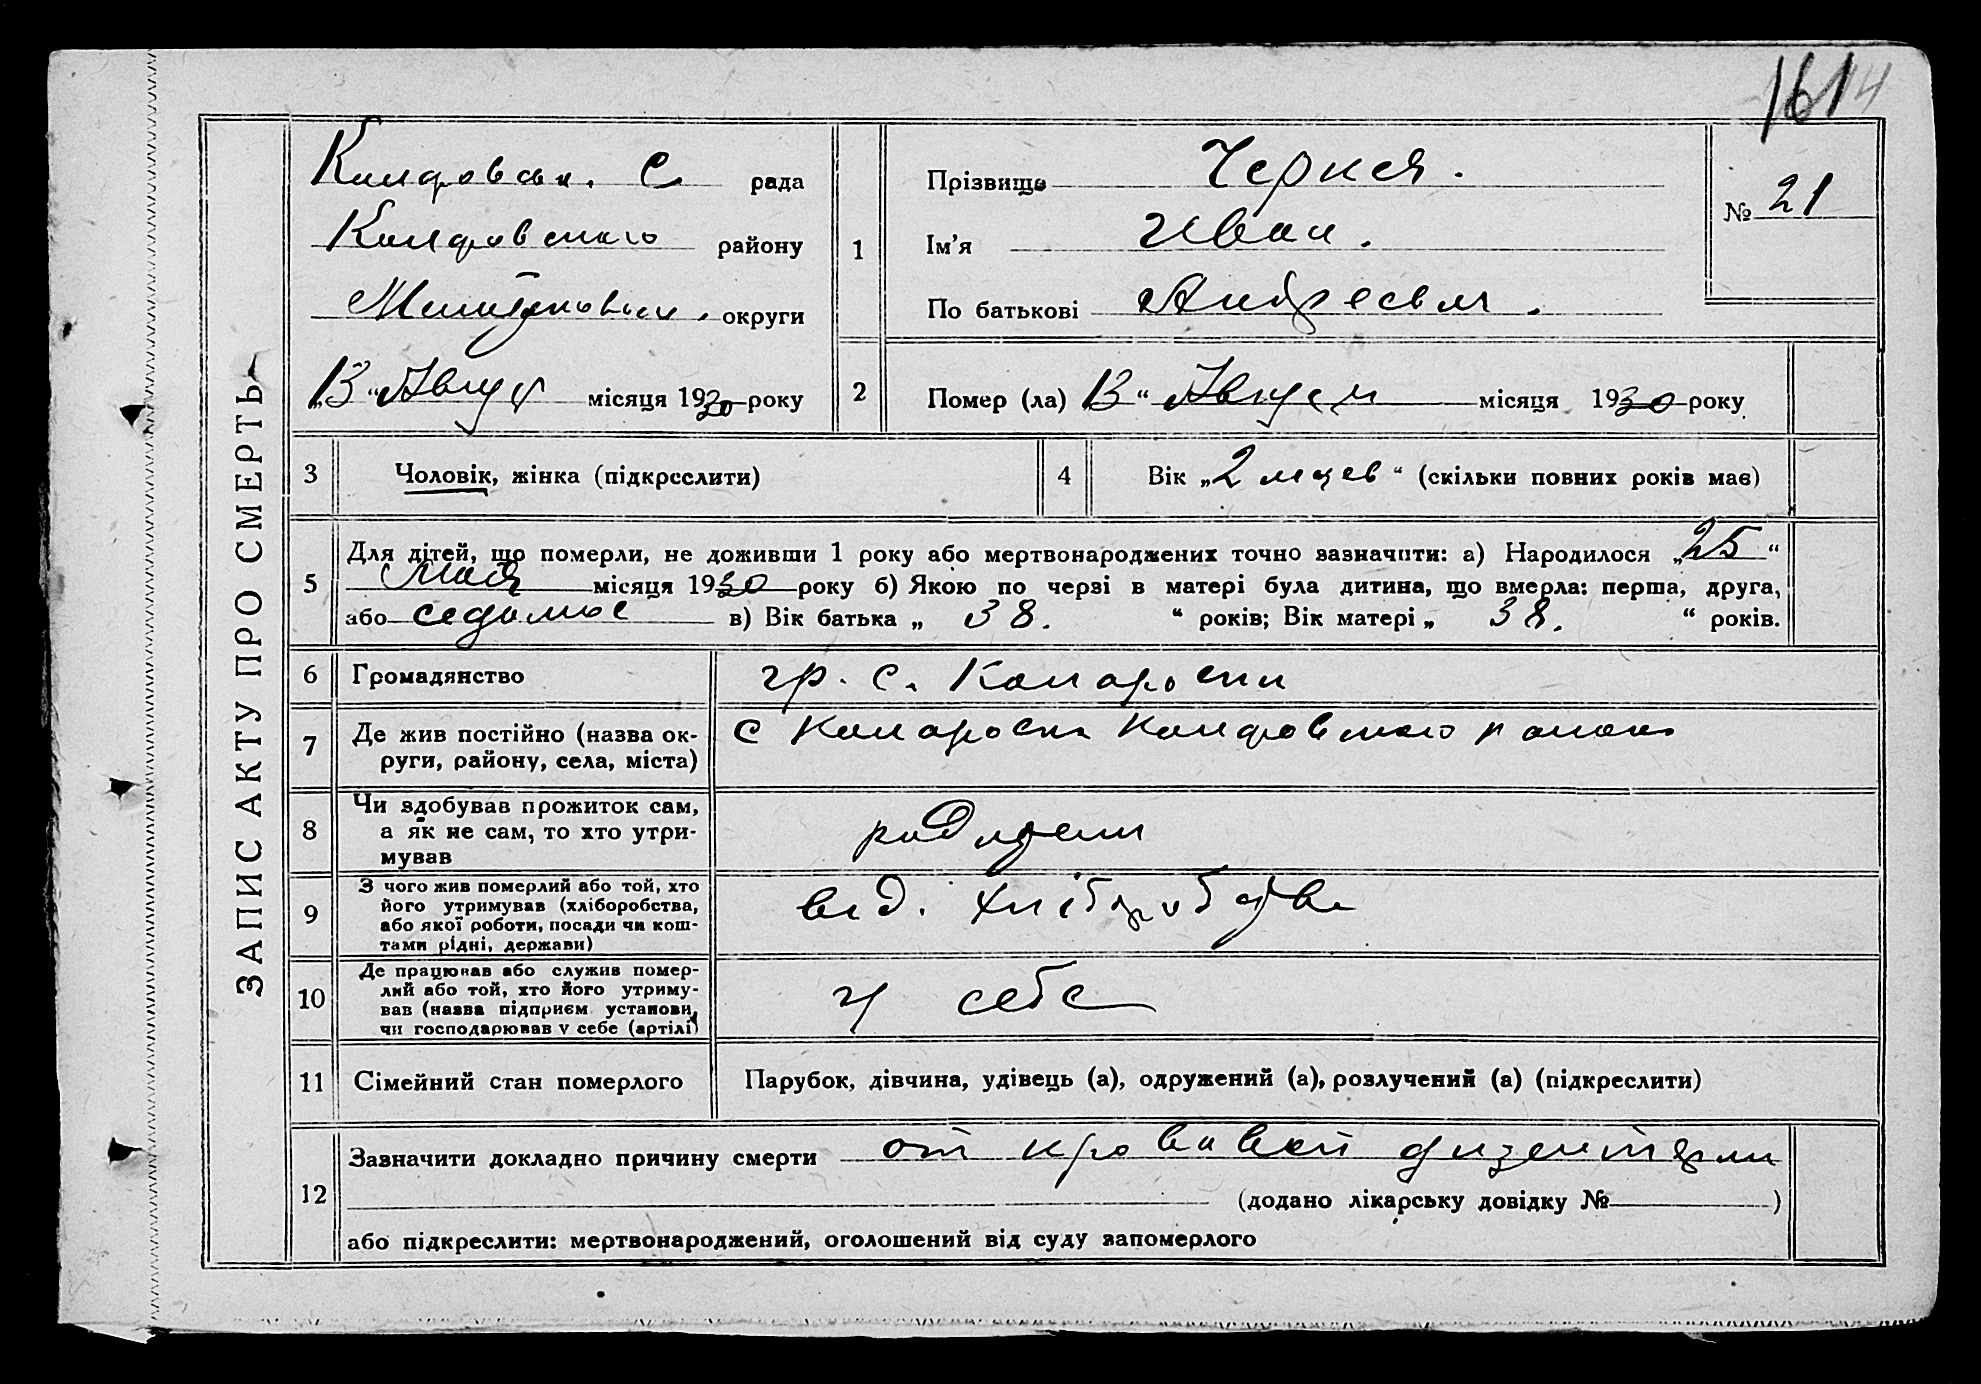 1614
ЗАПИС АКТУ ПРО СМЕРТЬ
С рада
району
округи
„13“ Август місяця 1930 року
1
Прізвище
Ім'я Иван.
По батькові Андреевич.
№ 21
2 Помер (ла) 13 “ Август місяця 1930 року
3 Чоловік, жінка (підкреслити)
4 Вік „2 мцев“ (скільки повних років має)
5 Для дітей, що померли, не доживши 1 року або мертвонароджених точно зазначити: а) Народилося „25“
Мая місяця 1930 року б) Якою по черзі в матері була дитина, що вмерла: перша, друга,
або седьмое в) Вік батька „ 38. “ років; Вік матері „ 38. “ років.
6 Громадянство гр. С.
7 Де жив постійно (назва ок-
руги, району, села, міста)
с
8 Чи здобував прожиток сам,
а як не сам, то хто утри-
мував
родители
9 З чого жив померлий або той, хто
його утримував (хліборобства,
або якої роботи, посади чи кош-
тами рідні, держави)
від. хліборобства
10 Де працював або служив помер-
лий або той, хто його утриму-
вав (назва підприєм. установи,
чи господарював у себе (артілі)
у себе
11 Сімейний стан померлого Парубок, дівчина, удівець (а), одружений (а), розлучений (а) (підкреслити)
12 Зазначити докладно причину смерти от кровавой дизентерии
(додано лікарську довідку № )
або підкреслити: мертвонароджений, оголошений від суду запомерлого